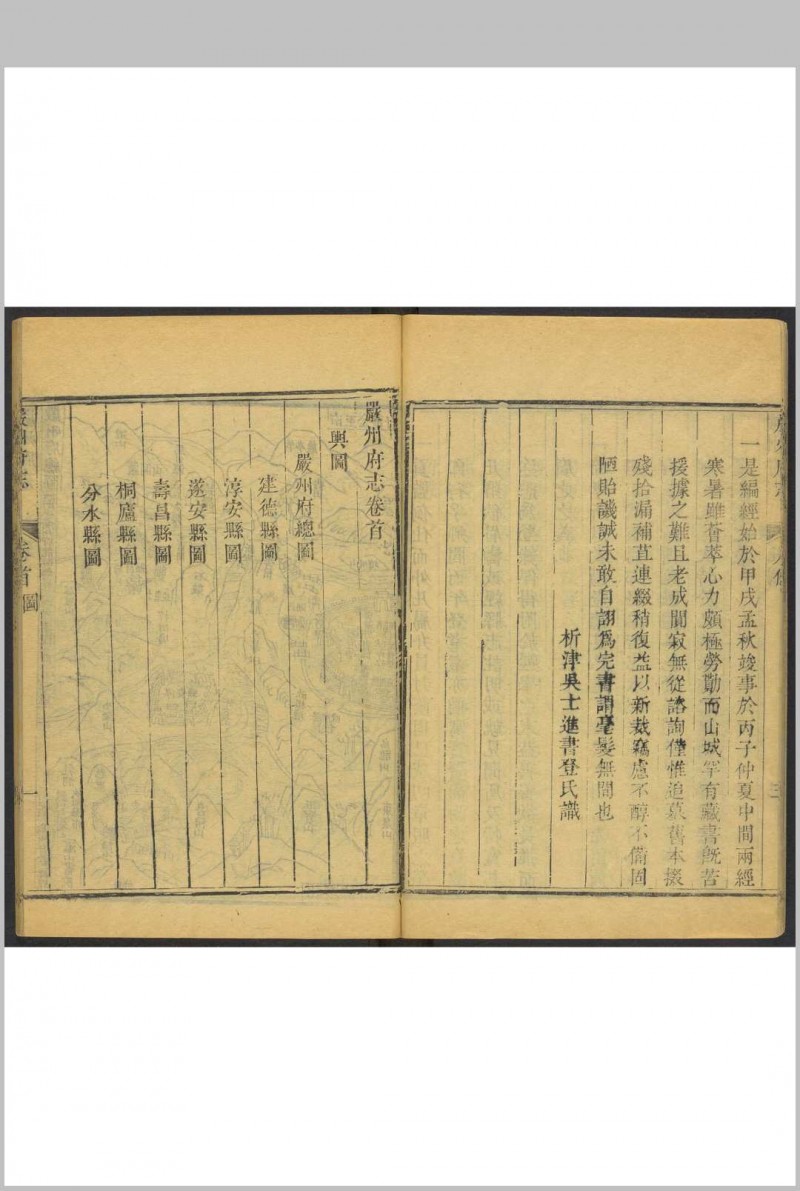 一是編經始於甲戌孟秋竣事於丙子仲夏中間兩經
寒暑雖薈萃心力頗極勞勩而山城罕有藏書旣苦
援據之難且老成闃寂無從諮詢僅惟追慕舊本掇
殘拾漏補苴連綴稍復益以新裁竊慮不醇不備固
陋貽譏誠未敢自詡爲完書謂毫髮無閒也
析津吳士進書登氏識
嚴州府志卷首
輿圖
嚴州府總圖
建德縣圖
淳安縣圖
遂安縣圖
壽昌縣圖
桐廬縣圖
分水縣圖
嚴州府志
卷首 圖
一